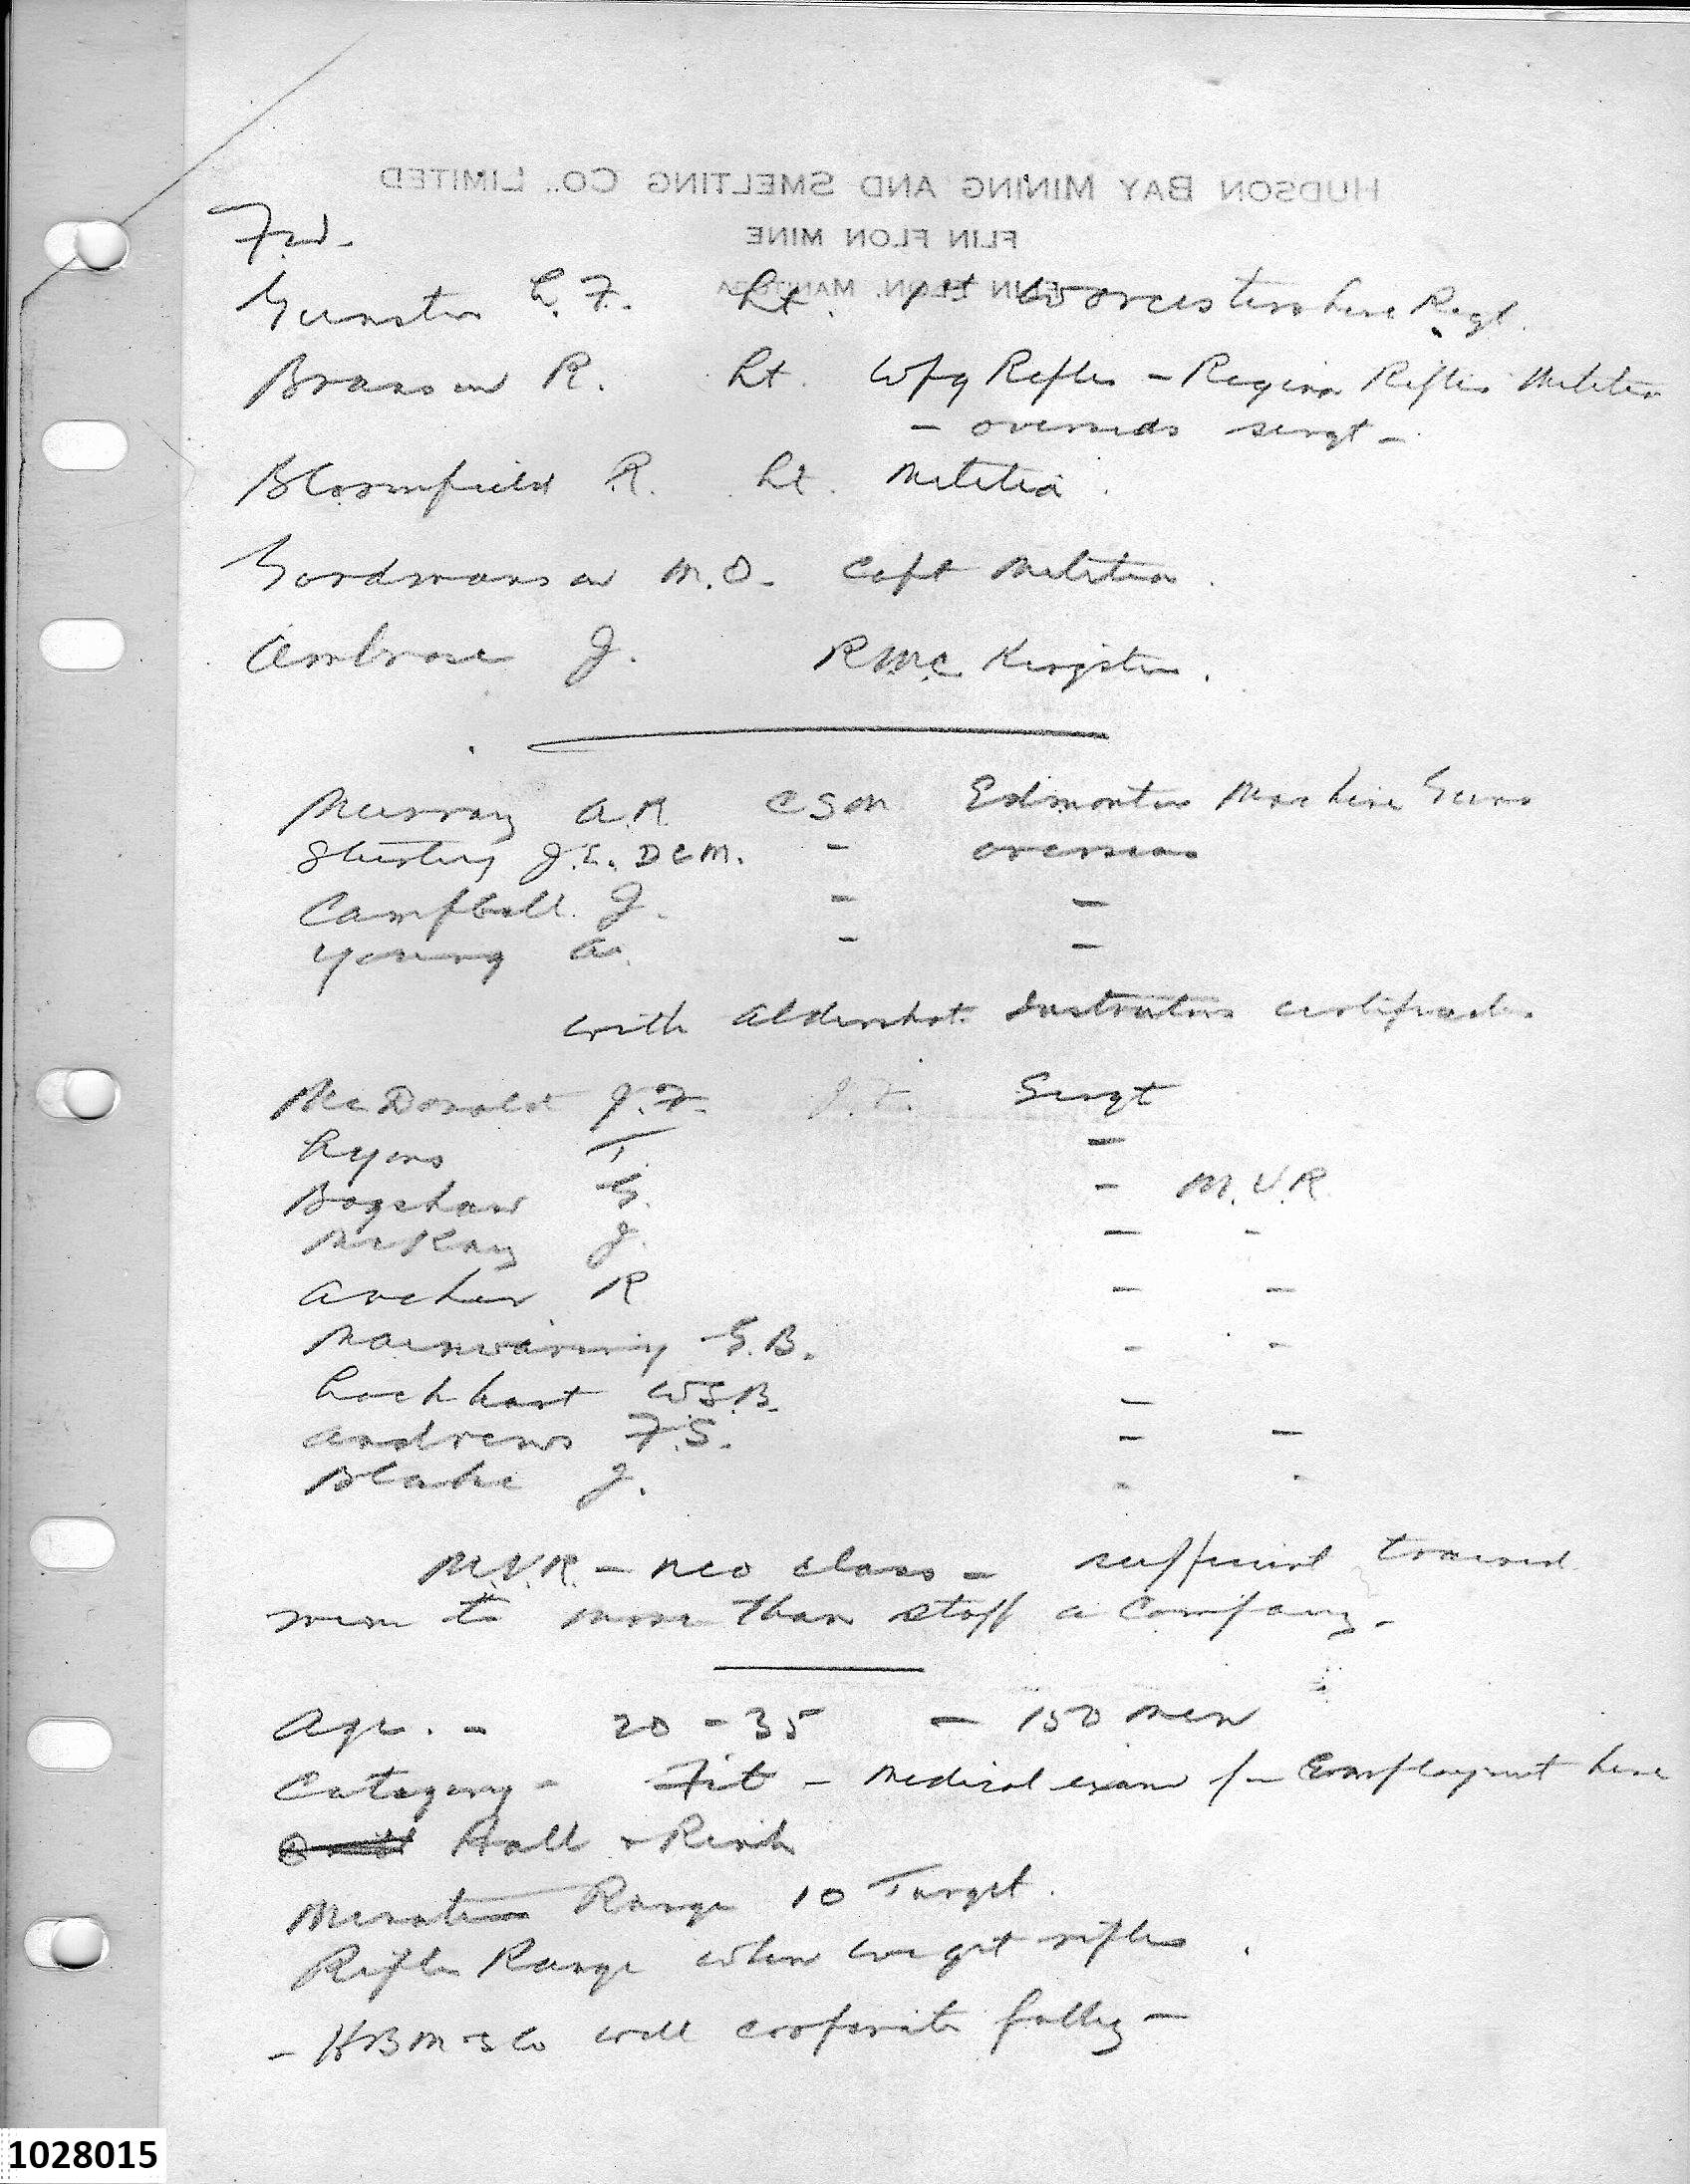 HUDSON BAY MINING AND SMELTING CO., LIMITED
FLIN FLON MINE
FLIN FLON, MANITOBA
Fwd.
Gunter L.F. Lt. 1st Worcestershire Regt.
Branson R. Lt. Wpg Rifles - Regina Rifles Militia
- overseas sergt -
Bloomfield R. Lt. Militia.
Goodmanson M.O. Capt Militia.
Ambrose J. RMC Kingston.
Murray A.R. CSM Edmonton Machine Guns
J.L. DCM. - overseas
Campbell. J. - -
Young A. - -
with Aldershot Instructors certificates
McDonald J.F. J.F. Sergt
Lyons T. -
Bagshaw G. - M.V.R.
McKay J. - -
Archer R - -
Mainwaring G.B. - -
Lockhart W.S.B. -
Andrews F.S. - -
Blake J. - -
M.V.R. - NCO class - sufficient trained
men to more than staff a Company -
Age. - 20 - 35 - 150 men
Category - Fit - Medical exam for Employment here
Hall & Rink
Miniature Range 10 Target.
Rifle Range when we get rifles.
- HBM&S Co will cooperate fully -
1028015